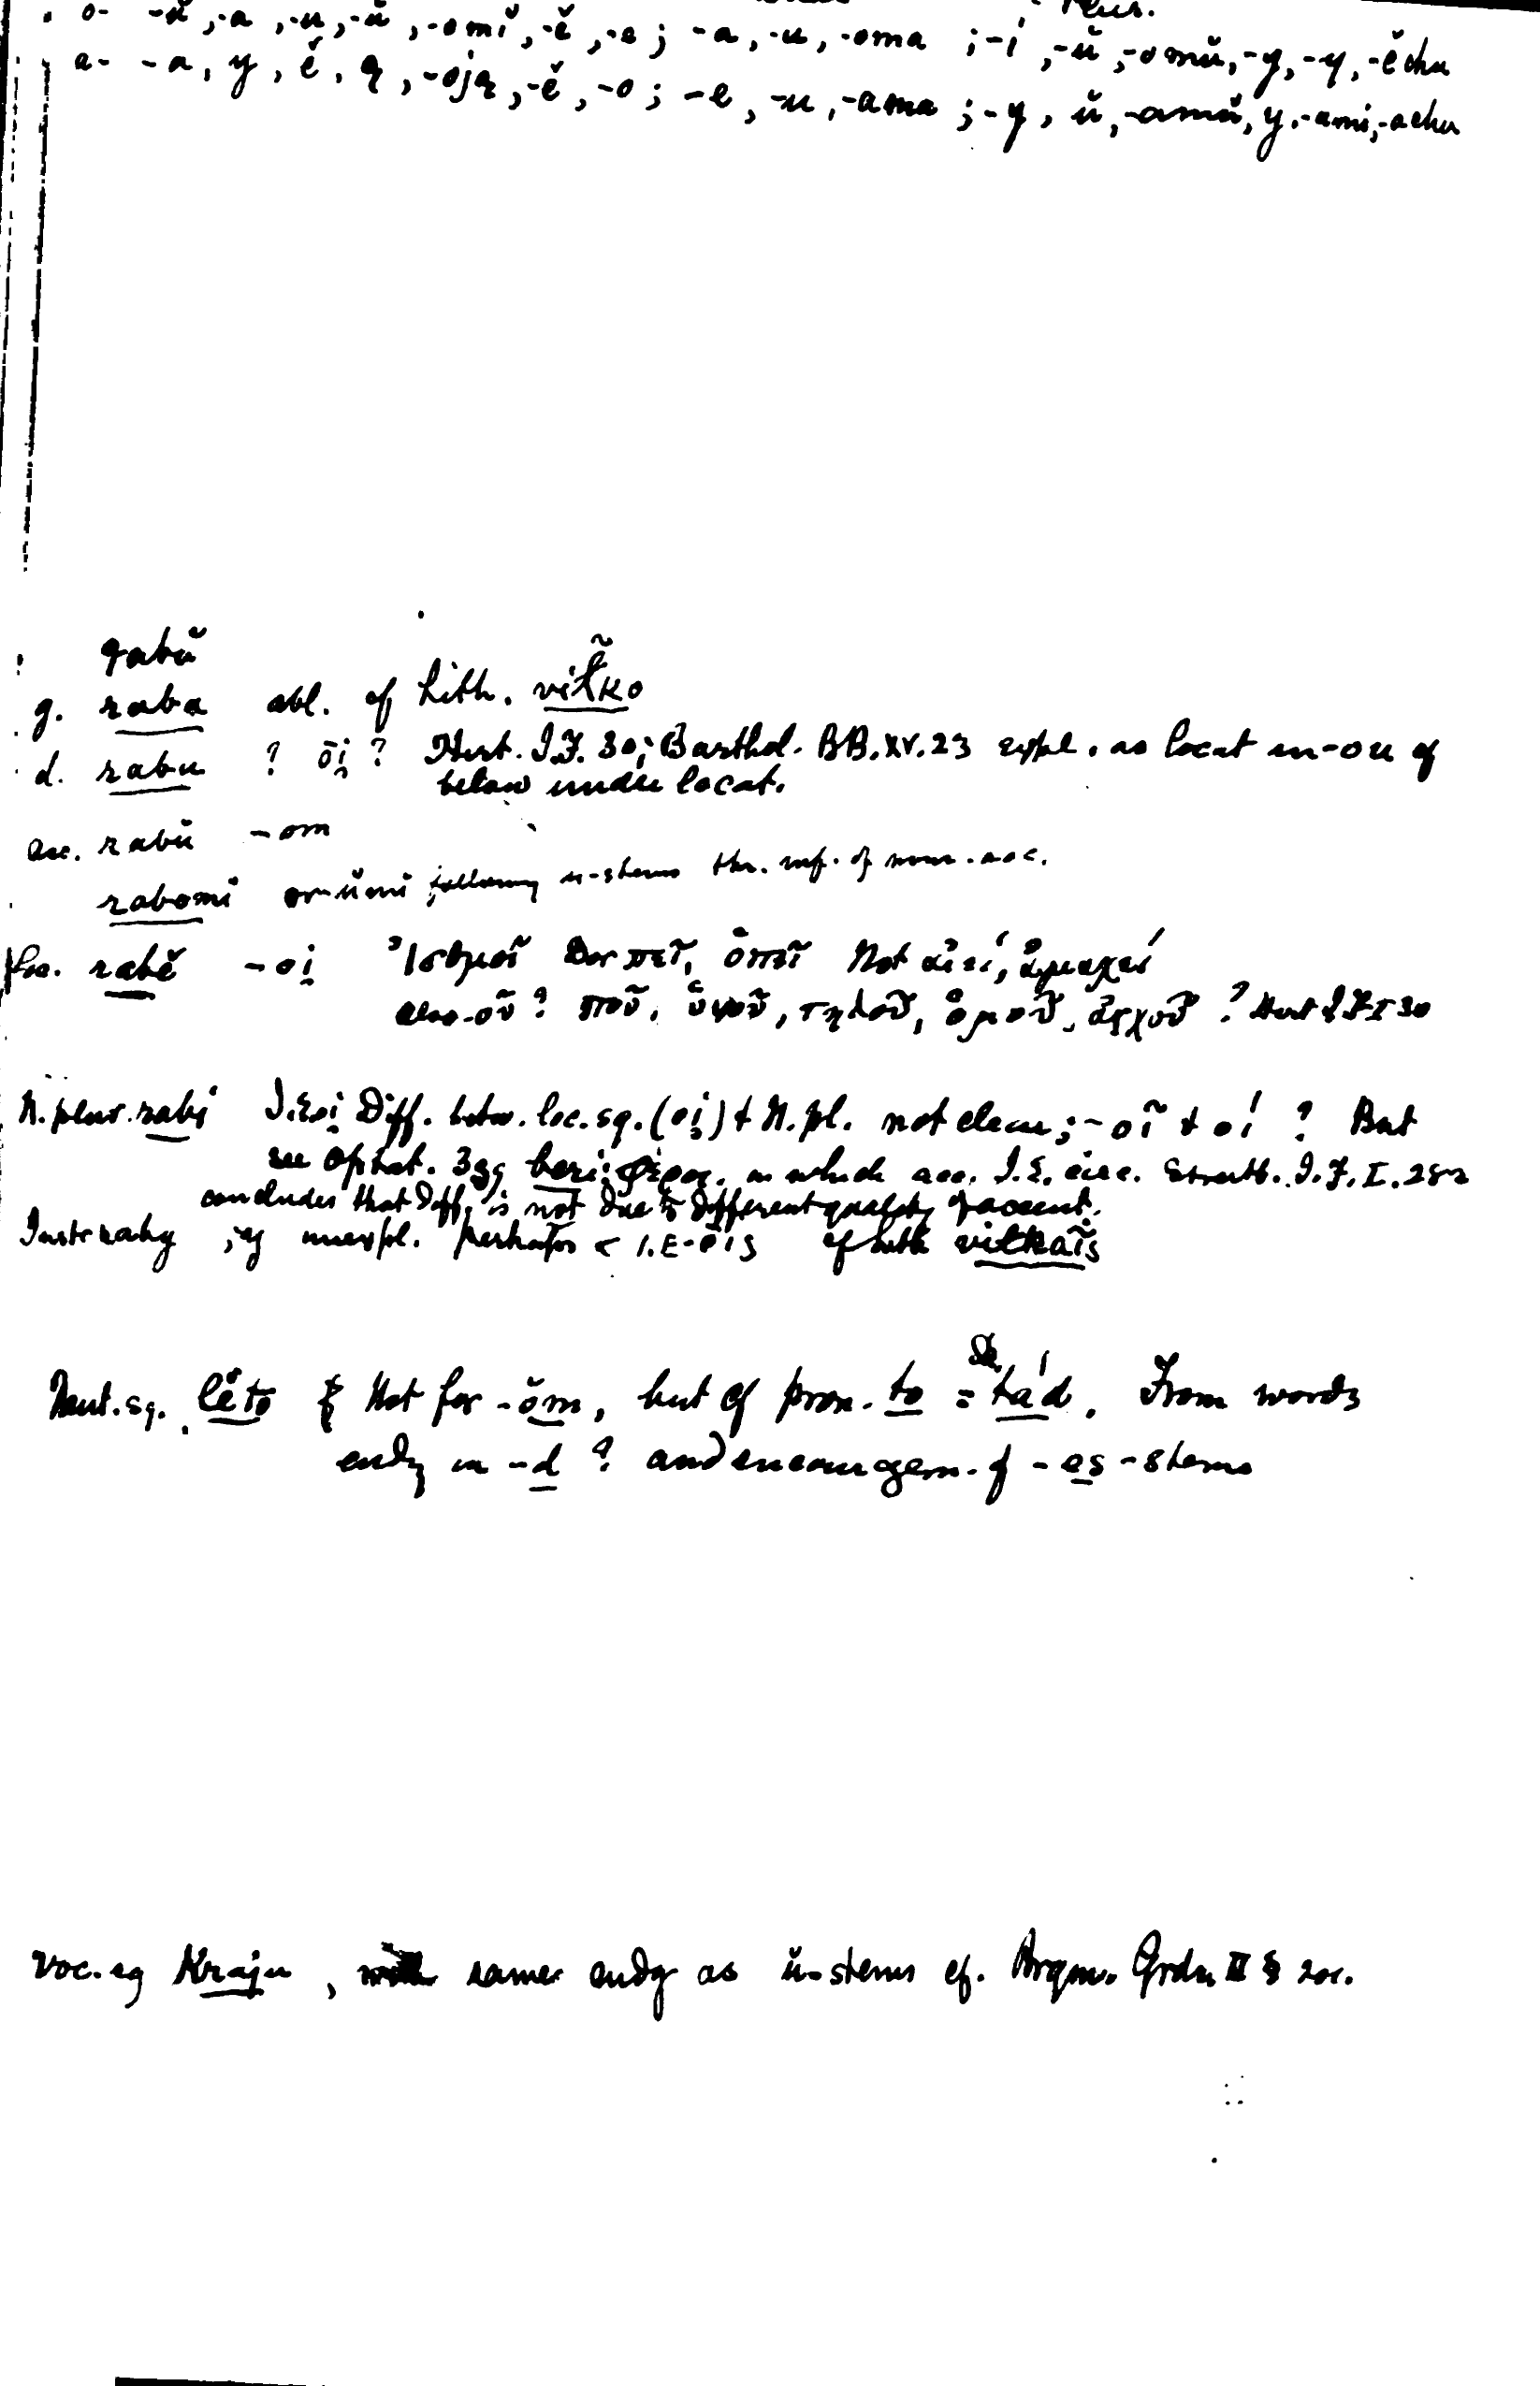 Plur.
o- -ŭ, -a, -u, -ŭ, -omĭ, -ě, -e; -a, -u, -oma; -i, -ŭ, -omŭ, -y, -y, -ěchu
a- -a, y, ě, ą, -oją, -ě, -o; -e, -u, -ama; -y, ŭ, -amŭ, y, -ami, -achu
rabŭ
g. raba abl. cf Lith. vil̃ko
d. rabu ? ōi̯ ? Hirt. I.F. 30; Barthol. BB. XV. 23 expl. as locat in -ou cf
below under locat.
acc. rabŭ -om
rabomĭ or -ŭmĭ following u-stems thr. inf. of nom. acc.
loc. rabě -oi̯ Ἰσθμοῖ Dor πεῖ, ὁπεῖ Not αἰεί, ἀμαχεί
also -οῦ? ποῦ, ὑψοῦ, τηλοῦ, ὁμοῦ, ἀγχοῦ ? Hirt I.F. I 30
N. plur. rabi I.E. oi̯ Diff. betw. loc. sg. (oi̯) + N. pl. not clear; -οῖ + οί ? But
see Optat. 3 sg beri: φέροι, in which acc. I.E. circ. Streitb. I.F. I. 282
concludes that Diff. is not due to different quality of accent.
Instr raby, y unexpl. Perhaps < I.E -ōis cf Lith vilkaĩs
Neut. sg. lěto Not for -ŏm, but cf pron. to = Sk tád. From words
endg in -d ? and encouragem. of -es-stems
Voc. sg Kraju, same endg as ŭ-stems cf. Brgm. Grdr. II §